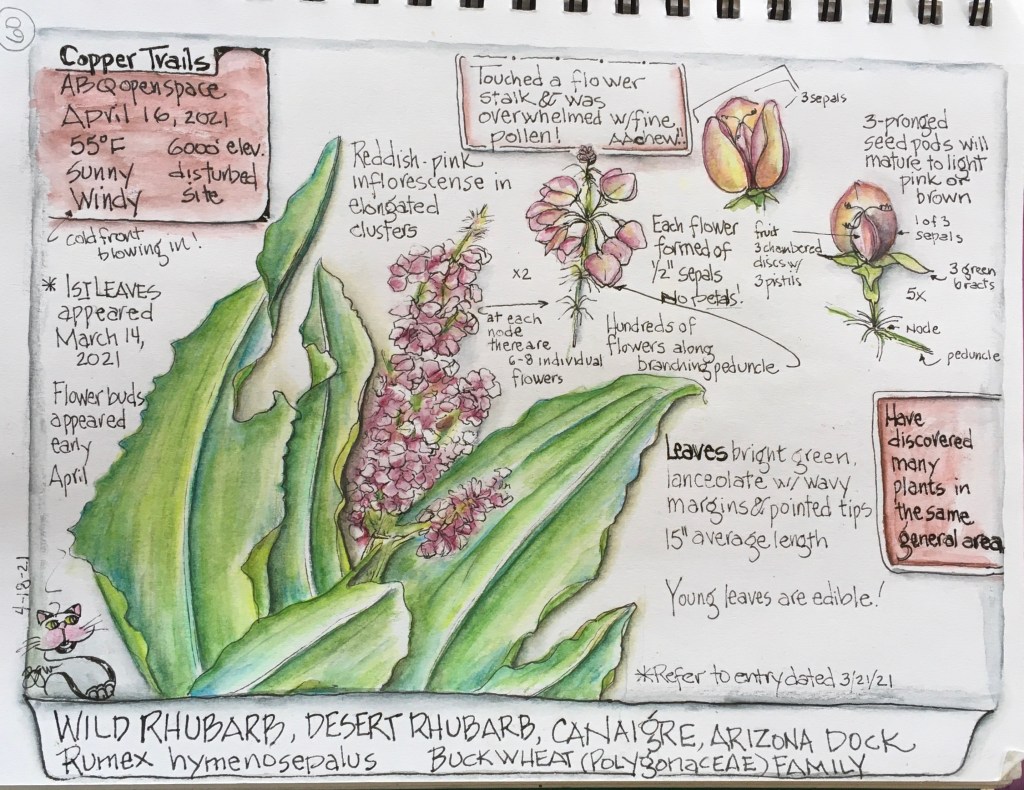 60
Copper Trails
ABQ openspace
April 16, 2021
55°F 6000' elev.
Sunny disturbed
Windy site
cold front
blowing in!
* 1st LEAVES
appeared
March 14,
2021
Flower buds
appeared
early
April
4-18-21
Reddish-pink
inflorescense in
elongated
clusters
Touched a flower
stalk & was
overwhelmed w/fine
pollen! AAchew!!
x2
at each
node
there are
6-8 individual
flowers
Each flower
formed of
1/2" sepals
No petals!
Hundreds of
flowers along
branching peduncle
3 sepals
3-pronged
seed pods will
mature to light
pink or
brown
fruit
3 chambered
discs w/
3 pistils
1 of 3
sepals
3 green
bracts
5x
Node
peduncle
Leaves bright green,
lanceolate w/ wavy
margins & pointed tips
15" average length
Young leaves are edible!
Have
discovered
many
plants in
the same
general area
*Refer to entry dated 3/21/21
WILD RHUBARB, DESERT RHUBARB, CANAIGRE, ARIZONA DOCK
Rumex hymenosepalus BUCKWHEAT (POLYGONACEAE) FAMILY